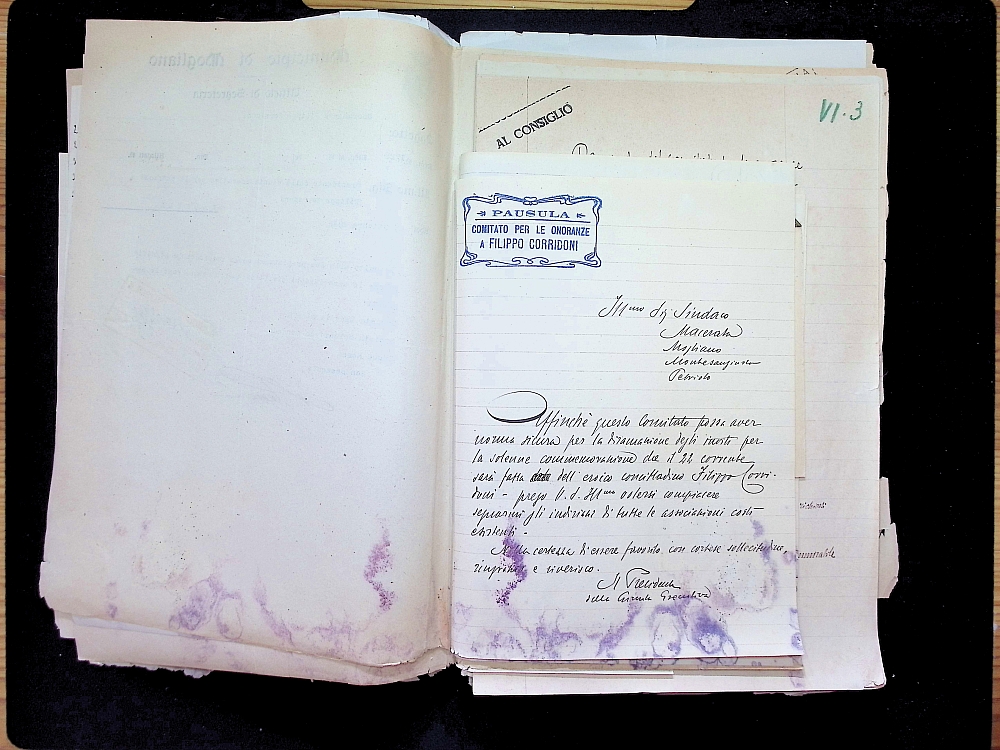 VI·3
AL CONSIGLIO
PAUSULA
COMITATO PER LE ONORANZE
A FILIPPO CORRIDONI
Ill.mo Sig Sindaco
Macerata
Mogliano
Montesangiusto
Petriolo
Affinchè questo Comitato possa aver
norma sicura per la diramazione degli inviti per
la solenne commemorazione che il 24 corrente
sarà fatta dell'eroico concittadino Filippo Corri-
doni - prego V.S. Ill.ma volersi compiacere
segnarmi gli indirizzi di tutte le associazioni costì
esistenti -
Nella certezza di essere favorito con cortese sollecitudine,
ringrazio e riverisco.
Il Presidente
della Giunta Esecutiva